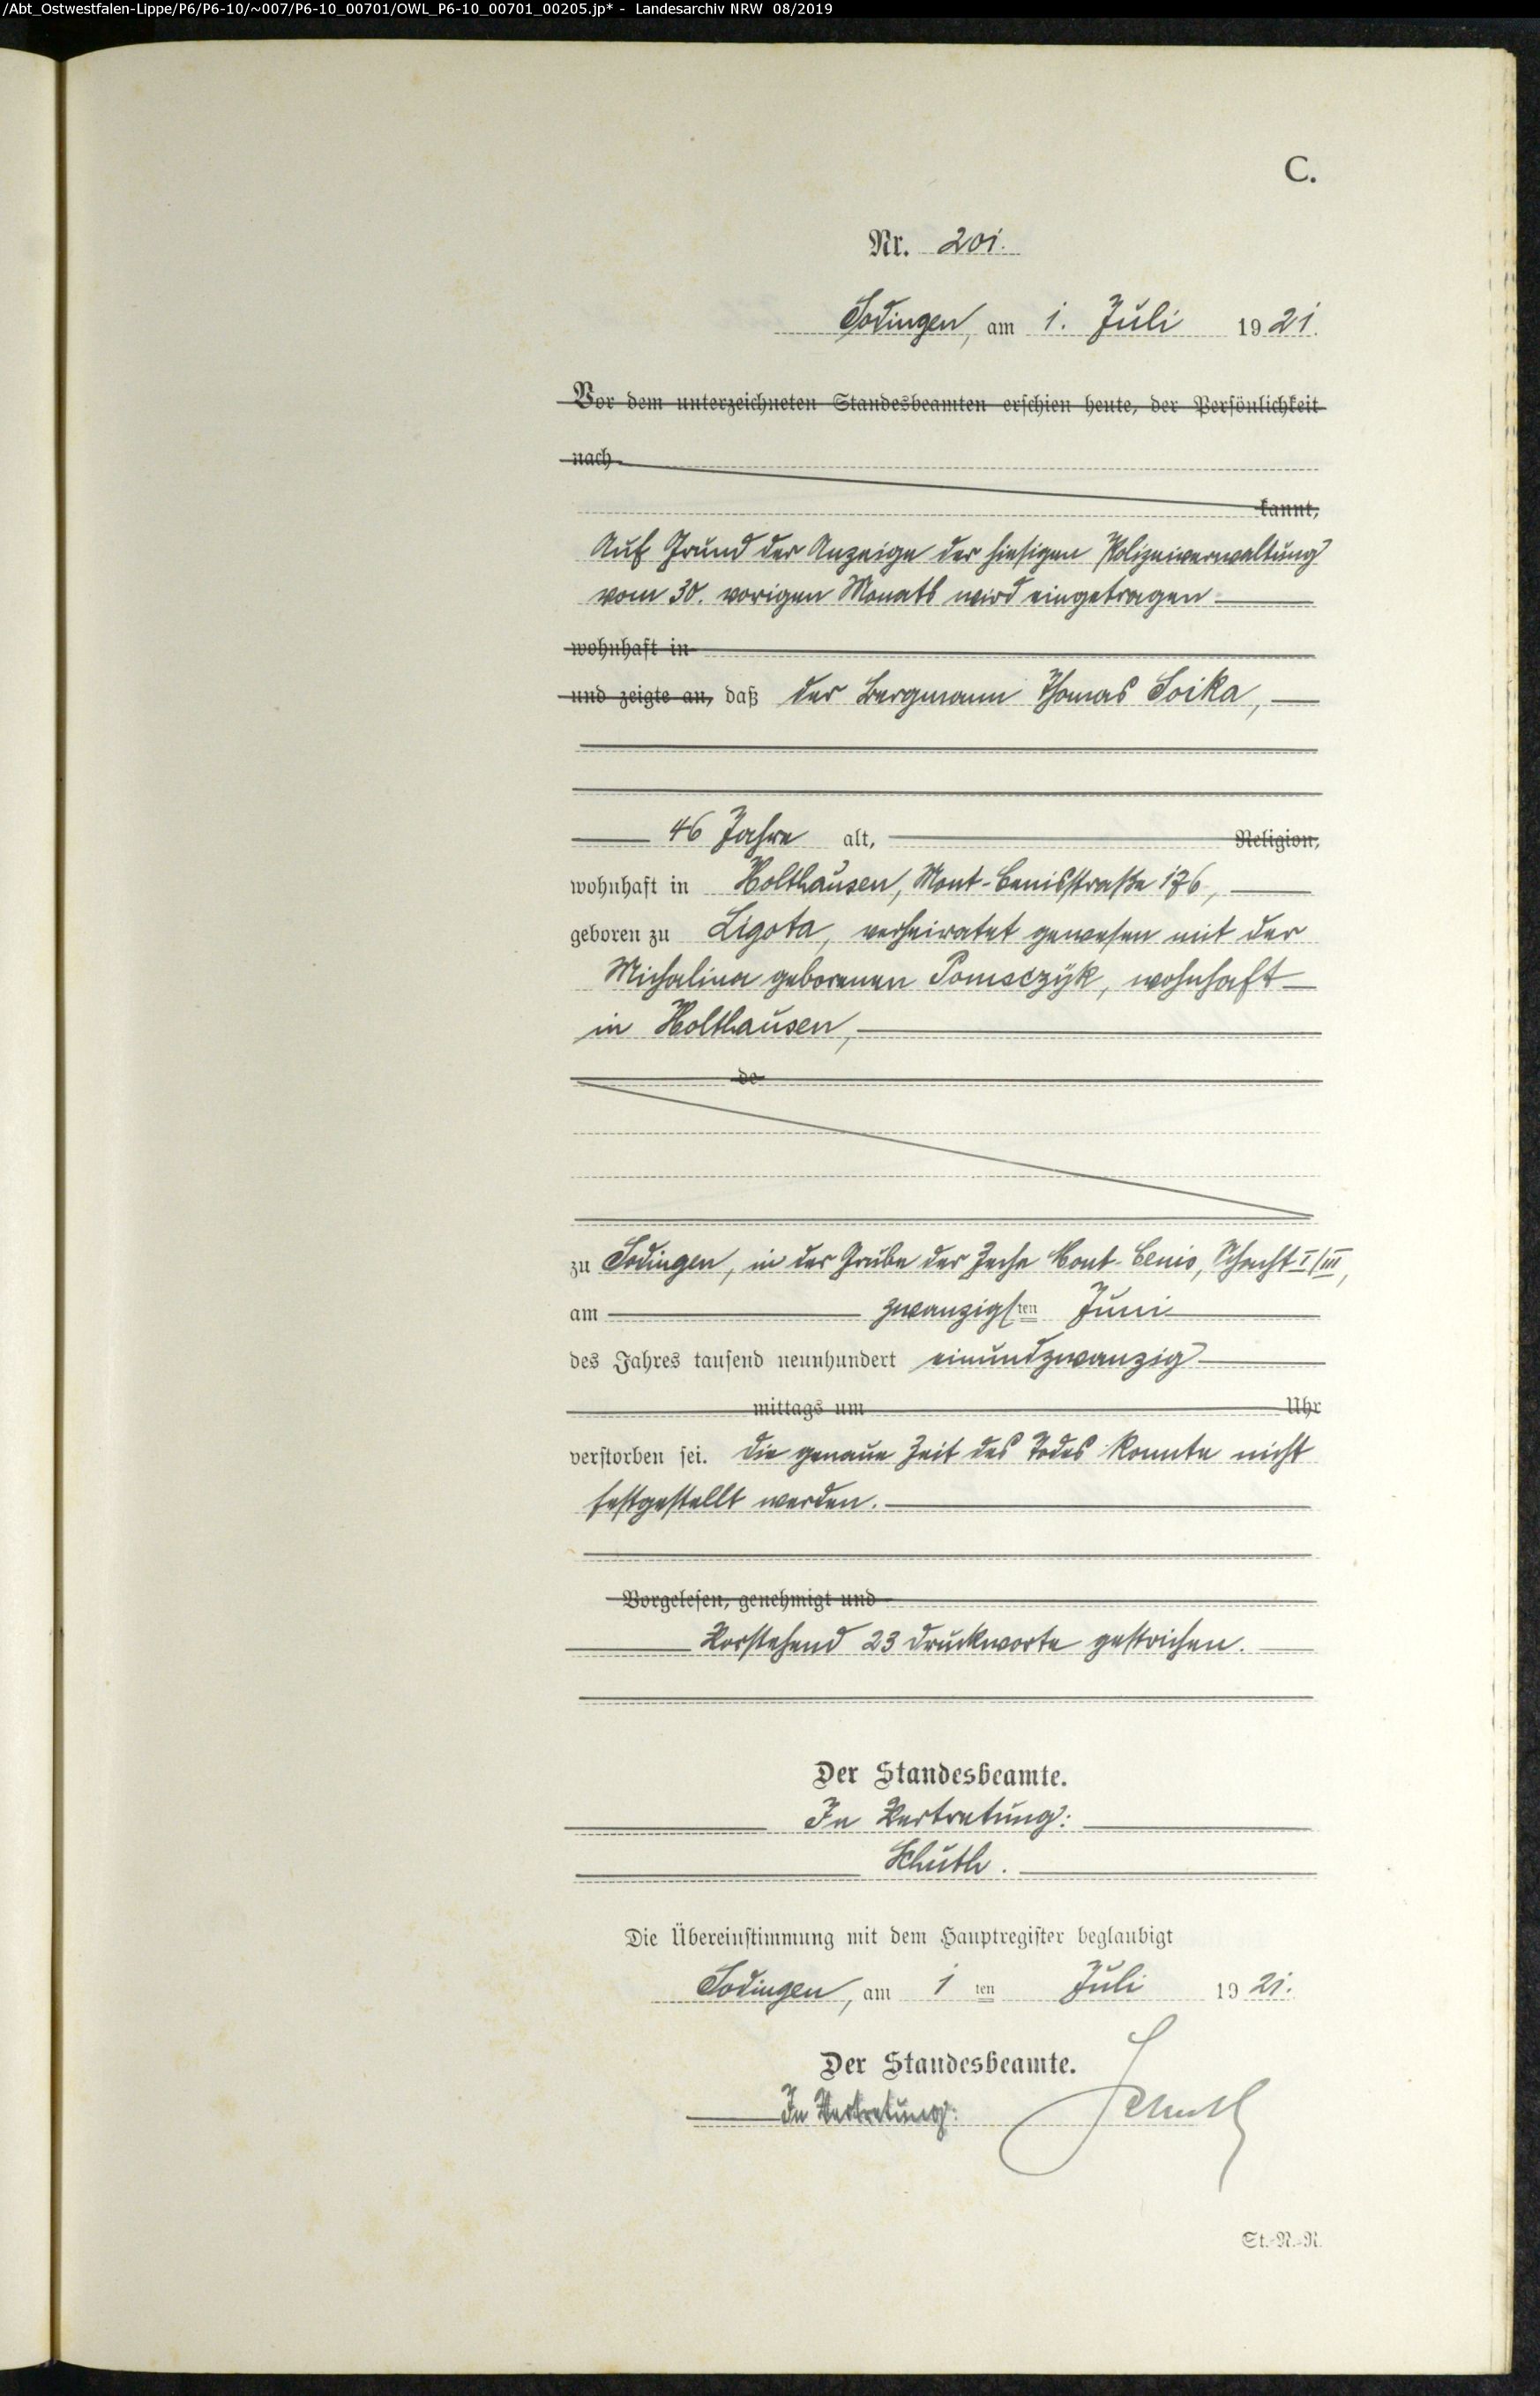 /Abt_Ostwestfalen-Lippe/P6/P6-10/~007/P6-10_00701/OWL_P6-10_00701_00205.jp* - Landesarchiv NRW 08/2019
C.
Nr. 201.
Sodingen, am 1. Juli 1921.
Vor dem unterzeichneten Standesbeamten erschien heute, der Persönlichkeit
nach
kannt,
Auf Grund der Anzeige der hiesigen Polizeiverwaltung
vom 30. vorigen Monats wird eingetragen
wohnhaft in
und zeigte an, daß der Bergmann Thomas Soika,
46 Jahre alt, Religion,
wohnhaft in Holthausen, Mont-Cenisstraße 176,
geboren zu Ligota, verheiratet gewesen mit der
Michalina geborenen Pomsczyk, wohnhaft
in Holthausen,
de
zu Sodingen, in der Grube der Zeche Mont-Cenis, Schacht I/III,
am zwanzigsten Juni
des Jahres tausend neunhundert einundzwanzig
mittags um Uhr
verstorben sei. Die genaue Zeit des Todes konnte nicht
festgestellt werden.
Vorgelesen, genehmigt und
Vorstehend 23 Druckworte gestrichen.
Der Standesbeamte.
In Vertretung:
Schuth.
Die Übereinstimmung mit dem Hauptregister beglaubigt
Sodingen, am 1 ten Juli 1921.
Der Standesbeamte.
In Vertretung: Schuth
St.-N.-R.